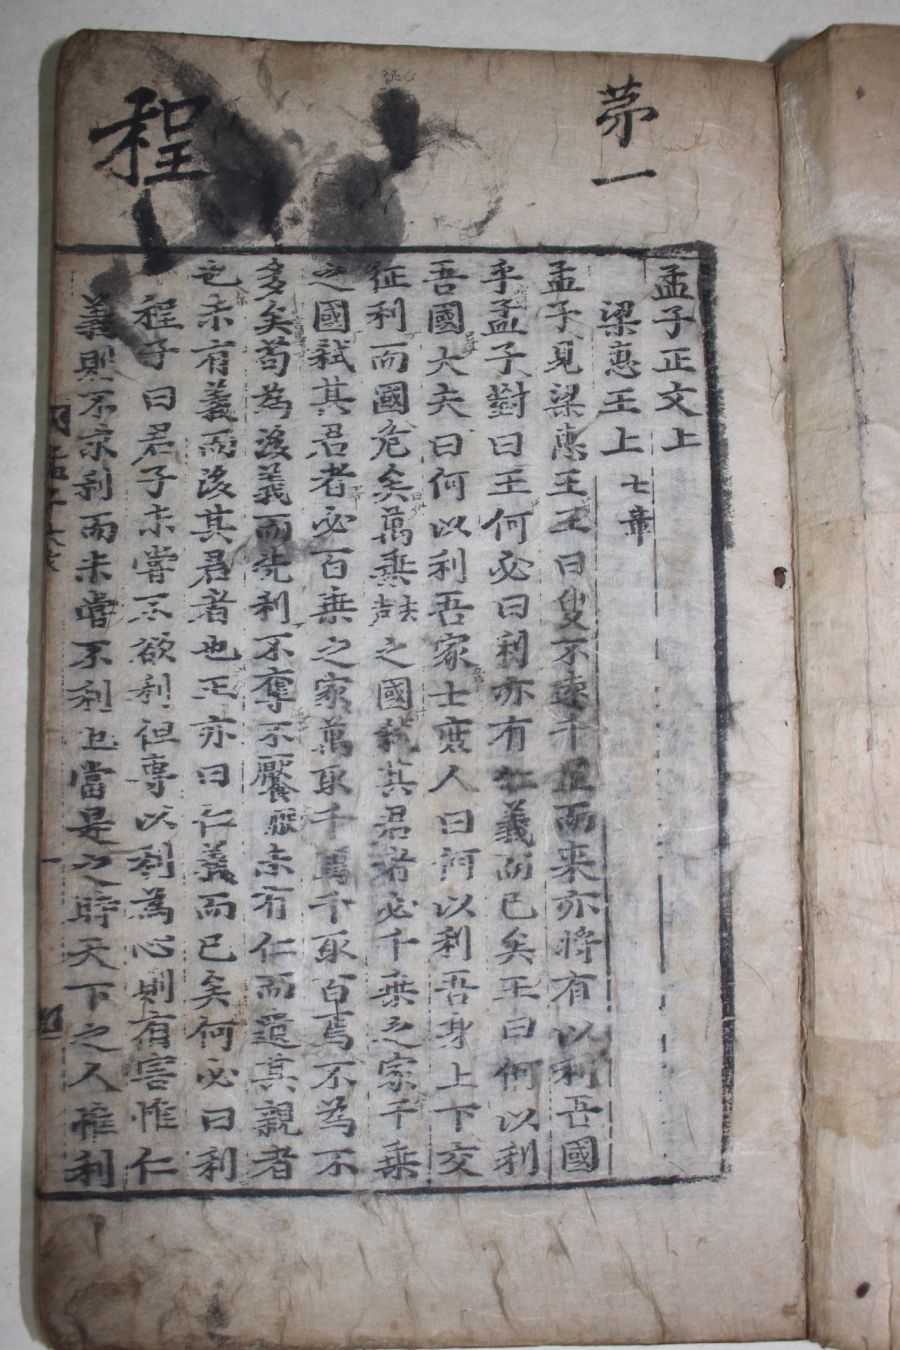 苐一
程
孟子正文上
梁惠王上 七章
孟子見梁惠王王曰叟不遠千里而来亦將有以利吾國
乎孟子對曰王何必曰利亦有仁義而已矣王曰何以利
吾國大夫曰何以利吾家士庶人曰何以利吾身上下交
征利而國危矣萬乗之國弑其君者必千乗之家千乗
之國弑其君者必百乗之家萬取千焉千取百焉不為不
多矣苟為後義而先利不奪不饜未有仁而遺其親者
也未有義而後其君者也王亦曰仁義而已矣何必曰利
程子曰君子未嘗不欲利但專以利為心則有害惟仁
義則不求利而未嘗不利也當是之時天下之人惟利